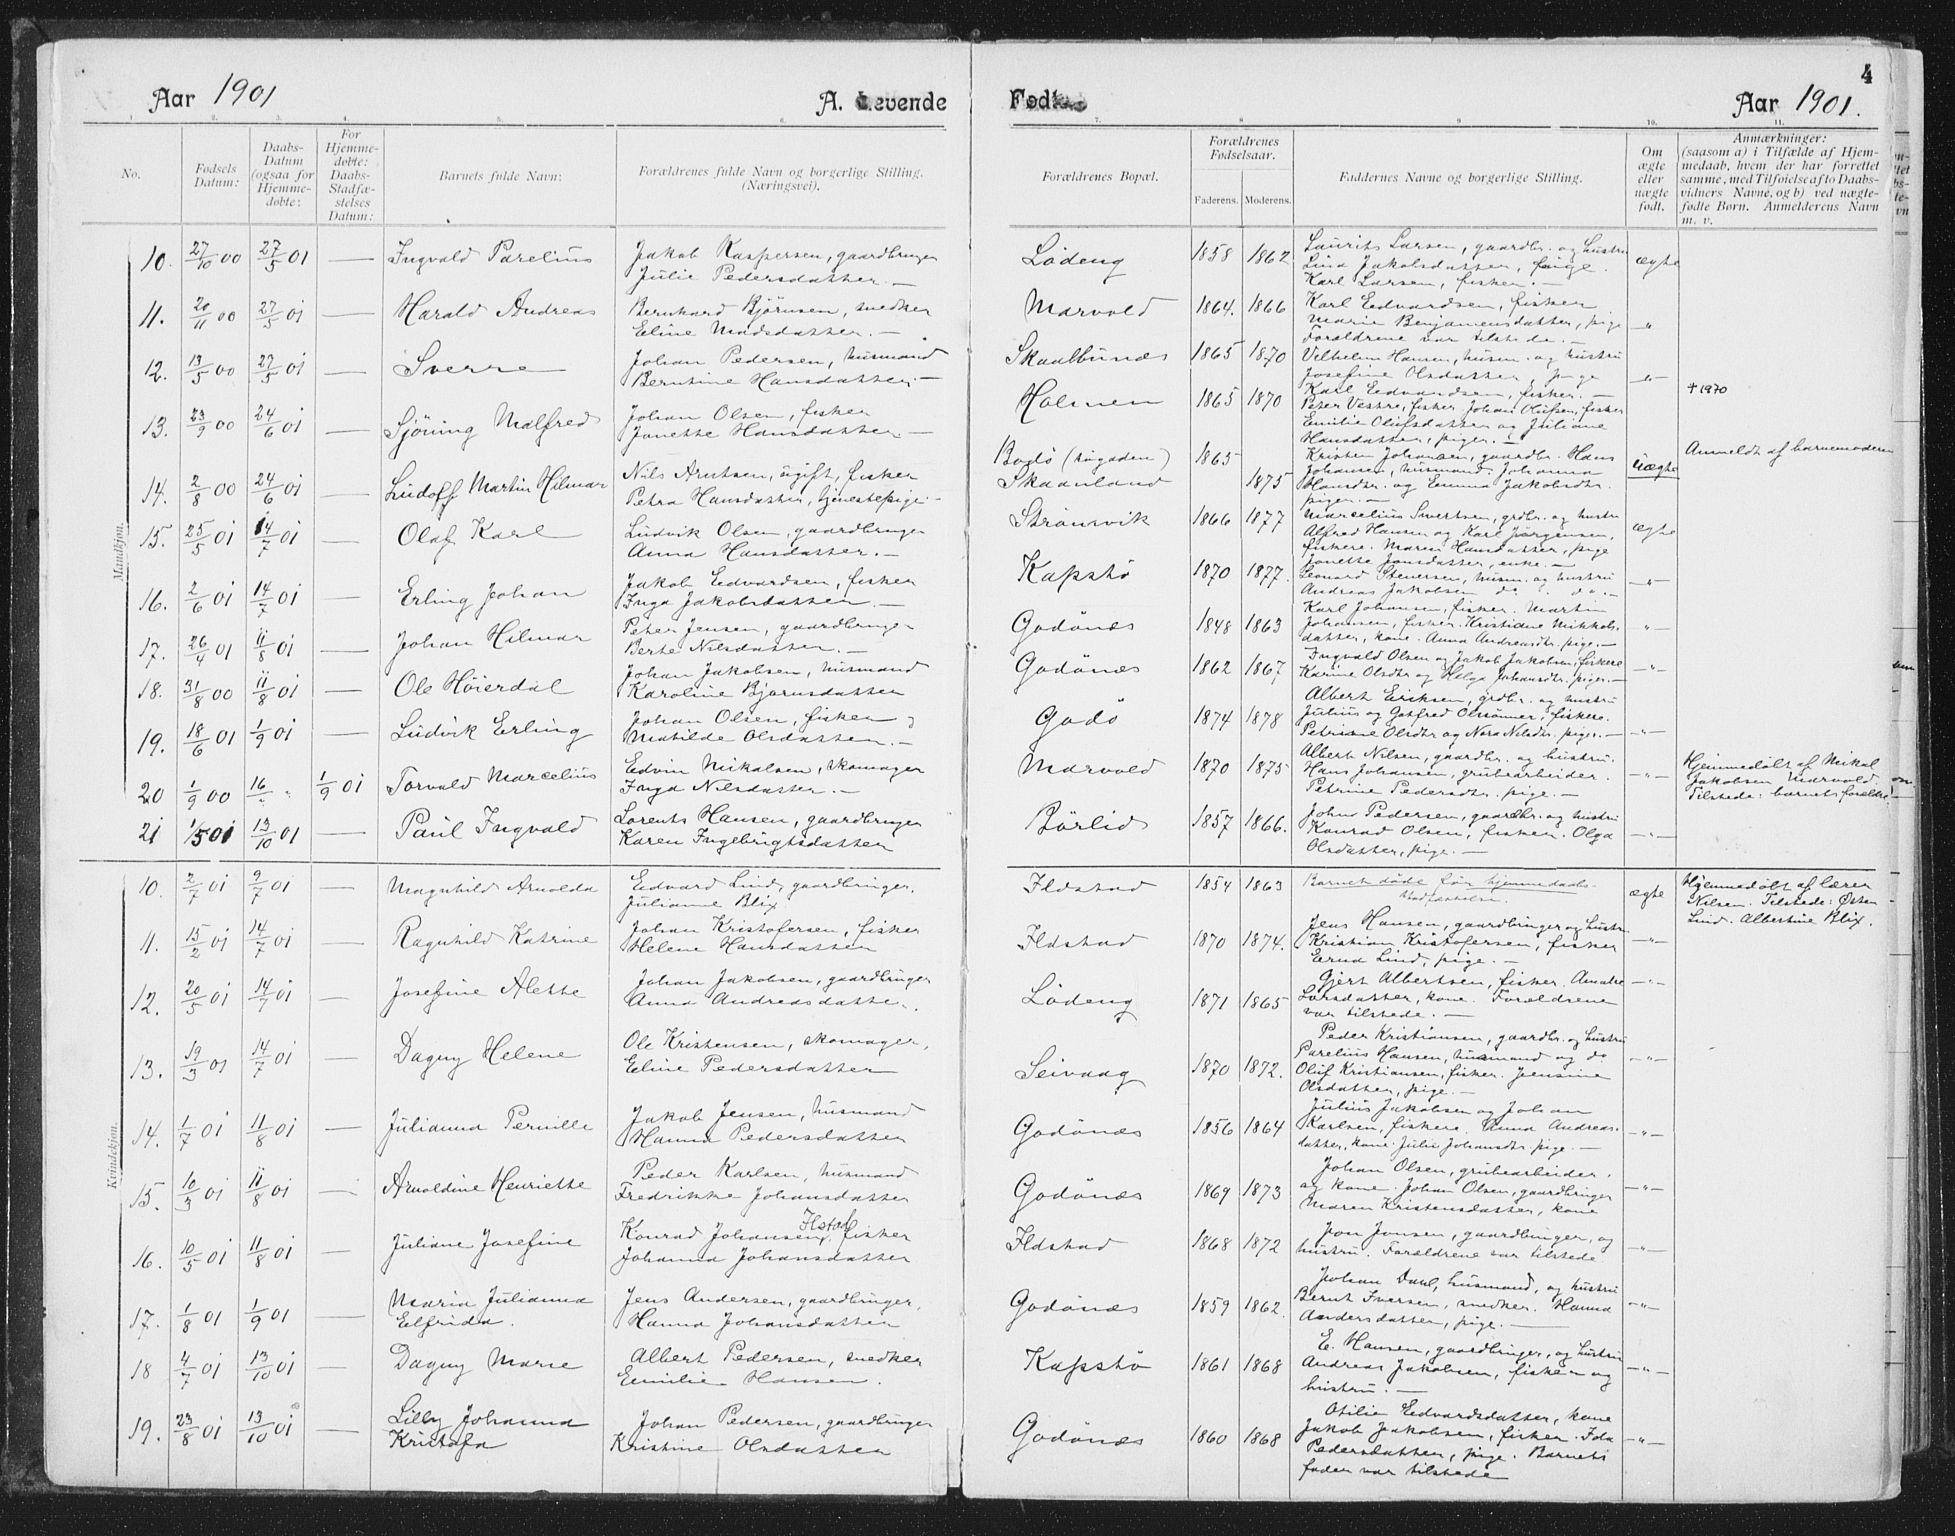 Aar 1901
A. Levende
Født
Aar 1901.
4
1. 2. 3. 4. 5. 6. 7. 8. 9. 10. 11.
No.
Fødsels Datum:
Daabs-Datum (ogsaa for Hjemmedøbte:
For Hjemmedøbte: Daabs-Stadfæstelses Datum:
Barnets fulde Navn:
Forældrenes fulde Navn og borgerlige Stilling.
(Næringsvei).
Forældrenes Bopæl.
Forældrenes Fødselsaar.
Faderens. Moderens.
Faddernes Navne og borgerlige Stilling.
Om ægte eller uægte født.
Anmærkninger:
(saasom a) i Tilfælde af Hjem-
medaab, hvem der har forrettet
samme, med Tilføielse af to Daabs-
vidners Navne, og b) ved uægte-
fødte Børn. Anmelderens Navn
m. v.
Mandkjøn.
10. 27/10 00 27/5 01 — Ingvald Parelius
Jakob Kaspersen, gaardbruger
Julie Pedersdatter. —
Lødeng 1858 1862
Laurits Larsen, gaardbr. og hustru
Lina Jakobsdatter, pige.
Karl Larsen, fisker. —
ægte
11. 20/11 00 27/5 01 — Harald Andreas
Bernhard Bjørnsen, snedker
Eline Madsdatter. —
Marvold 1864. 1866
Karl Edvardsen, fisker
Marie Benjamensdatter, pige
Forældrene var tilstede. —
—"—
12. 13/5 00 27/5 01 — Sverre
Johan Pedersen, husmand
Berntine Hansdatter. —
Skaalbunes 1865 1870
Vilhelm Hansen, husm. og hustru
Josefine Olsdatter, pige
Karl Edvardsen, fisker. —
—"—
13. 23/9 00 24/6 01 — Sjøning Malfred
Johan Olsen, fisker
Janette Hansdatter. —
Holmen 1865 1870
Peter Vestre, fisker Johan Olufsen, fisker
Emilie Olufsdatter og Juliane
Hansdatter, piger. —
† 1970
14. 2/8 00 24/6 01 — Ludolf Martin Hilmar
Nils Arntsen, ugift, fisker
Petra Hansdatter, tjenestepige. —
Bodø (søgaden) 1865
Skaanland 1875
Kristen Johansen, gaardbr. Hans
Johansen, husmand. Johanna
Hansdtr. og Emma Jakobsdtr.
piger. —
uægte
Anmeldt af barnemoderen
15. 25/5 01 14/7 01 — Olaf Karl
Ludvik Olsen, gaardbruger
Anna Hansdatter. —
Strømsvik 1866 1877
Marcelius Sivertsen, grdbr. og hustru
Alfred Hansen og Karl Jørgensen,
fiskere. Maren Hansdatter, pige
ægte
16. 2/6 01 14/7 01 — Erling Johan
Jakob Edvardsen, fisker
Inga Jakobsdatter. —
Kapstø 1870 1877.
Janette Jonsdatter, enke. —
Leonard Stenersen, husm. og hustru
Andreas Jakobsen do. do. —
—"—
17. 26/4 01 11/8 01 — Johan Hilmar
Peter Jensen, gaardbruger
Berte Nilsdatter. —
Godønes 1848 1863
Karl Johansen, fisker. Martin
Johansen, fisker. Kristiane Mikkels-
datter, kone. Anna Andreasdtr. pige. —
—"—
18. 31/8 00 11/8 01 — Ole Høierdal
Johan Jakobsen, husmand
Karoline Bjørnsdatter
Godønes 1862 1867
Ingvald Olsen og Jakob Jakobsen, fiskere
Karine Olsdtr og Helga Johansdtr. piger. —
—"—
19. 18/6 01 1/9 01 — Ludvik Erling
Johan Olsen, fisker
Matilde Olsdatter. —
Godø 1874 1878
Albert Eriksen, grdbr. og hustru
Julius og Gotfred Olssønner, fiskere.
Petrine Olsdtr og Nora Nilsdtr. piger. —
—"—
20 1/9 00 16/" " 1/9 01 Torvald Marcelius
Edvin Mikalsen, skomager
Inga Nilsdatter. —
Marvold 1870 1875
Albert Nilsen, gaardbr. og hustru.
Hans Johansen, grubearbeider.
Petrine Pedersdtr. pige. —
—"—
Hjemmedøbt af Mikal
Jakobsen Marvold
Tilstede: barnets forældre. —
21 1/5 01 13/10 01 — Paul Ingvald
Lorents Hansen, gaardbruger
Karen Ingebrigtsdatter
Børlid 1857 1866.
John Pedersen, gaardbr. og hustru
Konrad Olsen, fisker. Olga
Olsdatter, pige. —
—"—
Kvindekjøn.
10. 2/7 01 9/7 01 — Magnhild Arnolda
Edvard Lind, gaardbruger,
Julianne Blix
Ildstad 1854 1863
Barnet døde før hjemmedaabs-
stadfæstelsen.
ægte
Hjemmedøbt af lærer
Nilsen. Tilstede: Østen
Lind. Albertine Blix.
11. 15/2 01 14/7 01 — Ragnhild Katrine
Johan Kristofersen, fisker
Helene Hansdatter
Ildstad 1870 1874.
Jens Hansen, gaardbruger og hustru
Kristian Kristofersen, fisker
Erna Lind, pige. —
—"—
12. 20/5 01 14/7 01 — Josefine Alette
Johan Jakobsen, gaardbruger
Anna Andreasdatter.
Lødeng 1871 1865
Gjert Albertsen, fisker. Amalie
Larsdatter, kone. Forældrene
var tilstede. —
—"—
13. 19/3 01 14/7 01 — Dagny Helene
Ole Kristensen, skomager,
Eline Pedersdatter
Seivaag 1870 1872.
Peder Kristiansen, gaardbr. og hustru
Parelius Hansen, husmand og do
Oluf Kristiansen, fisker. Jensine
Olsdatter, pige. —
—"—
14. 1/7 01 11/8 01 — Julianna Pernille
Jakob Jensen, husmand
Hanna Pedersdatter
Godønes 1856 1864
Julius Jakobsen og Johan
Karlsen, fiskere. Anna Andreas-
datter, kone. Julie Johansdtr. pige. —
—"—
15. 10/3 01 11/8 01 — Arnoldine Henriette
Peder Karlsen, husmand
Fredrikke Johansdatter
Godønes 1869 1873
Johan Olsen, grubearbeider.
og kone. Johan Olsen, gaardbruger
Maren Kristensdatter, kone
—"—
16. 10/5 01 11/8 01 — Juliane Josefine
Ilstad
Konrad Johansen, fisker
Johanna Johansdatter
Ildstad 1868 1872
Jon Jonsen, gaardbruger, og
hustru. Forældrene var tilstede
—"—
17. 1/8 01 1/9 01 — Maria Julianna
Elfrida.
Jens Andersen, gaardbruger,
Hanna Johansdatter
Godønes 1859 1862.
Johan Dahl, husmand, og hustru
Bernt Iversen, snedker. Hanna
Andersdatter, pige. —
—"—
18 4/7 01 13/10 01 — Dagny Marie
Albert Pedersen, snedker
Emilie Hansen.
Kapstø 1861 1868
E. Hansen, gaardbruger, og hustru
Andreas Jakobsen, fisker og
hustru. —
—"—
19. 23/8 01 13/10 01 — Lilly Johanna
Kristofa
Johan Pedersen, gaardbruger
Kristine Olsdatter
Godønes 1860 1868
Otilie Edvardsdatter, kone
Jakob Jakobsen, fisker. Ida
Pedersdatter, pige. Barnets
fader var tilstede
—"—